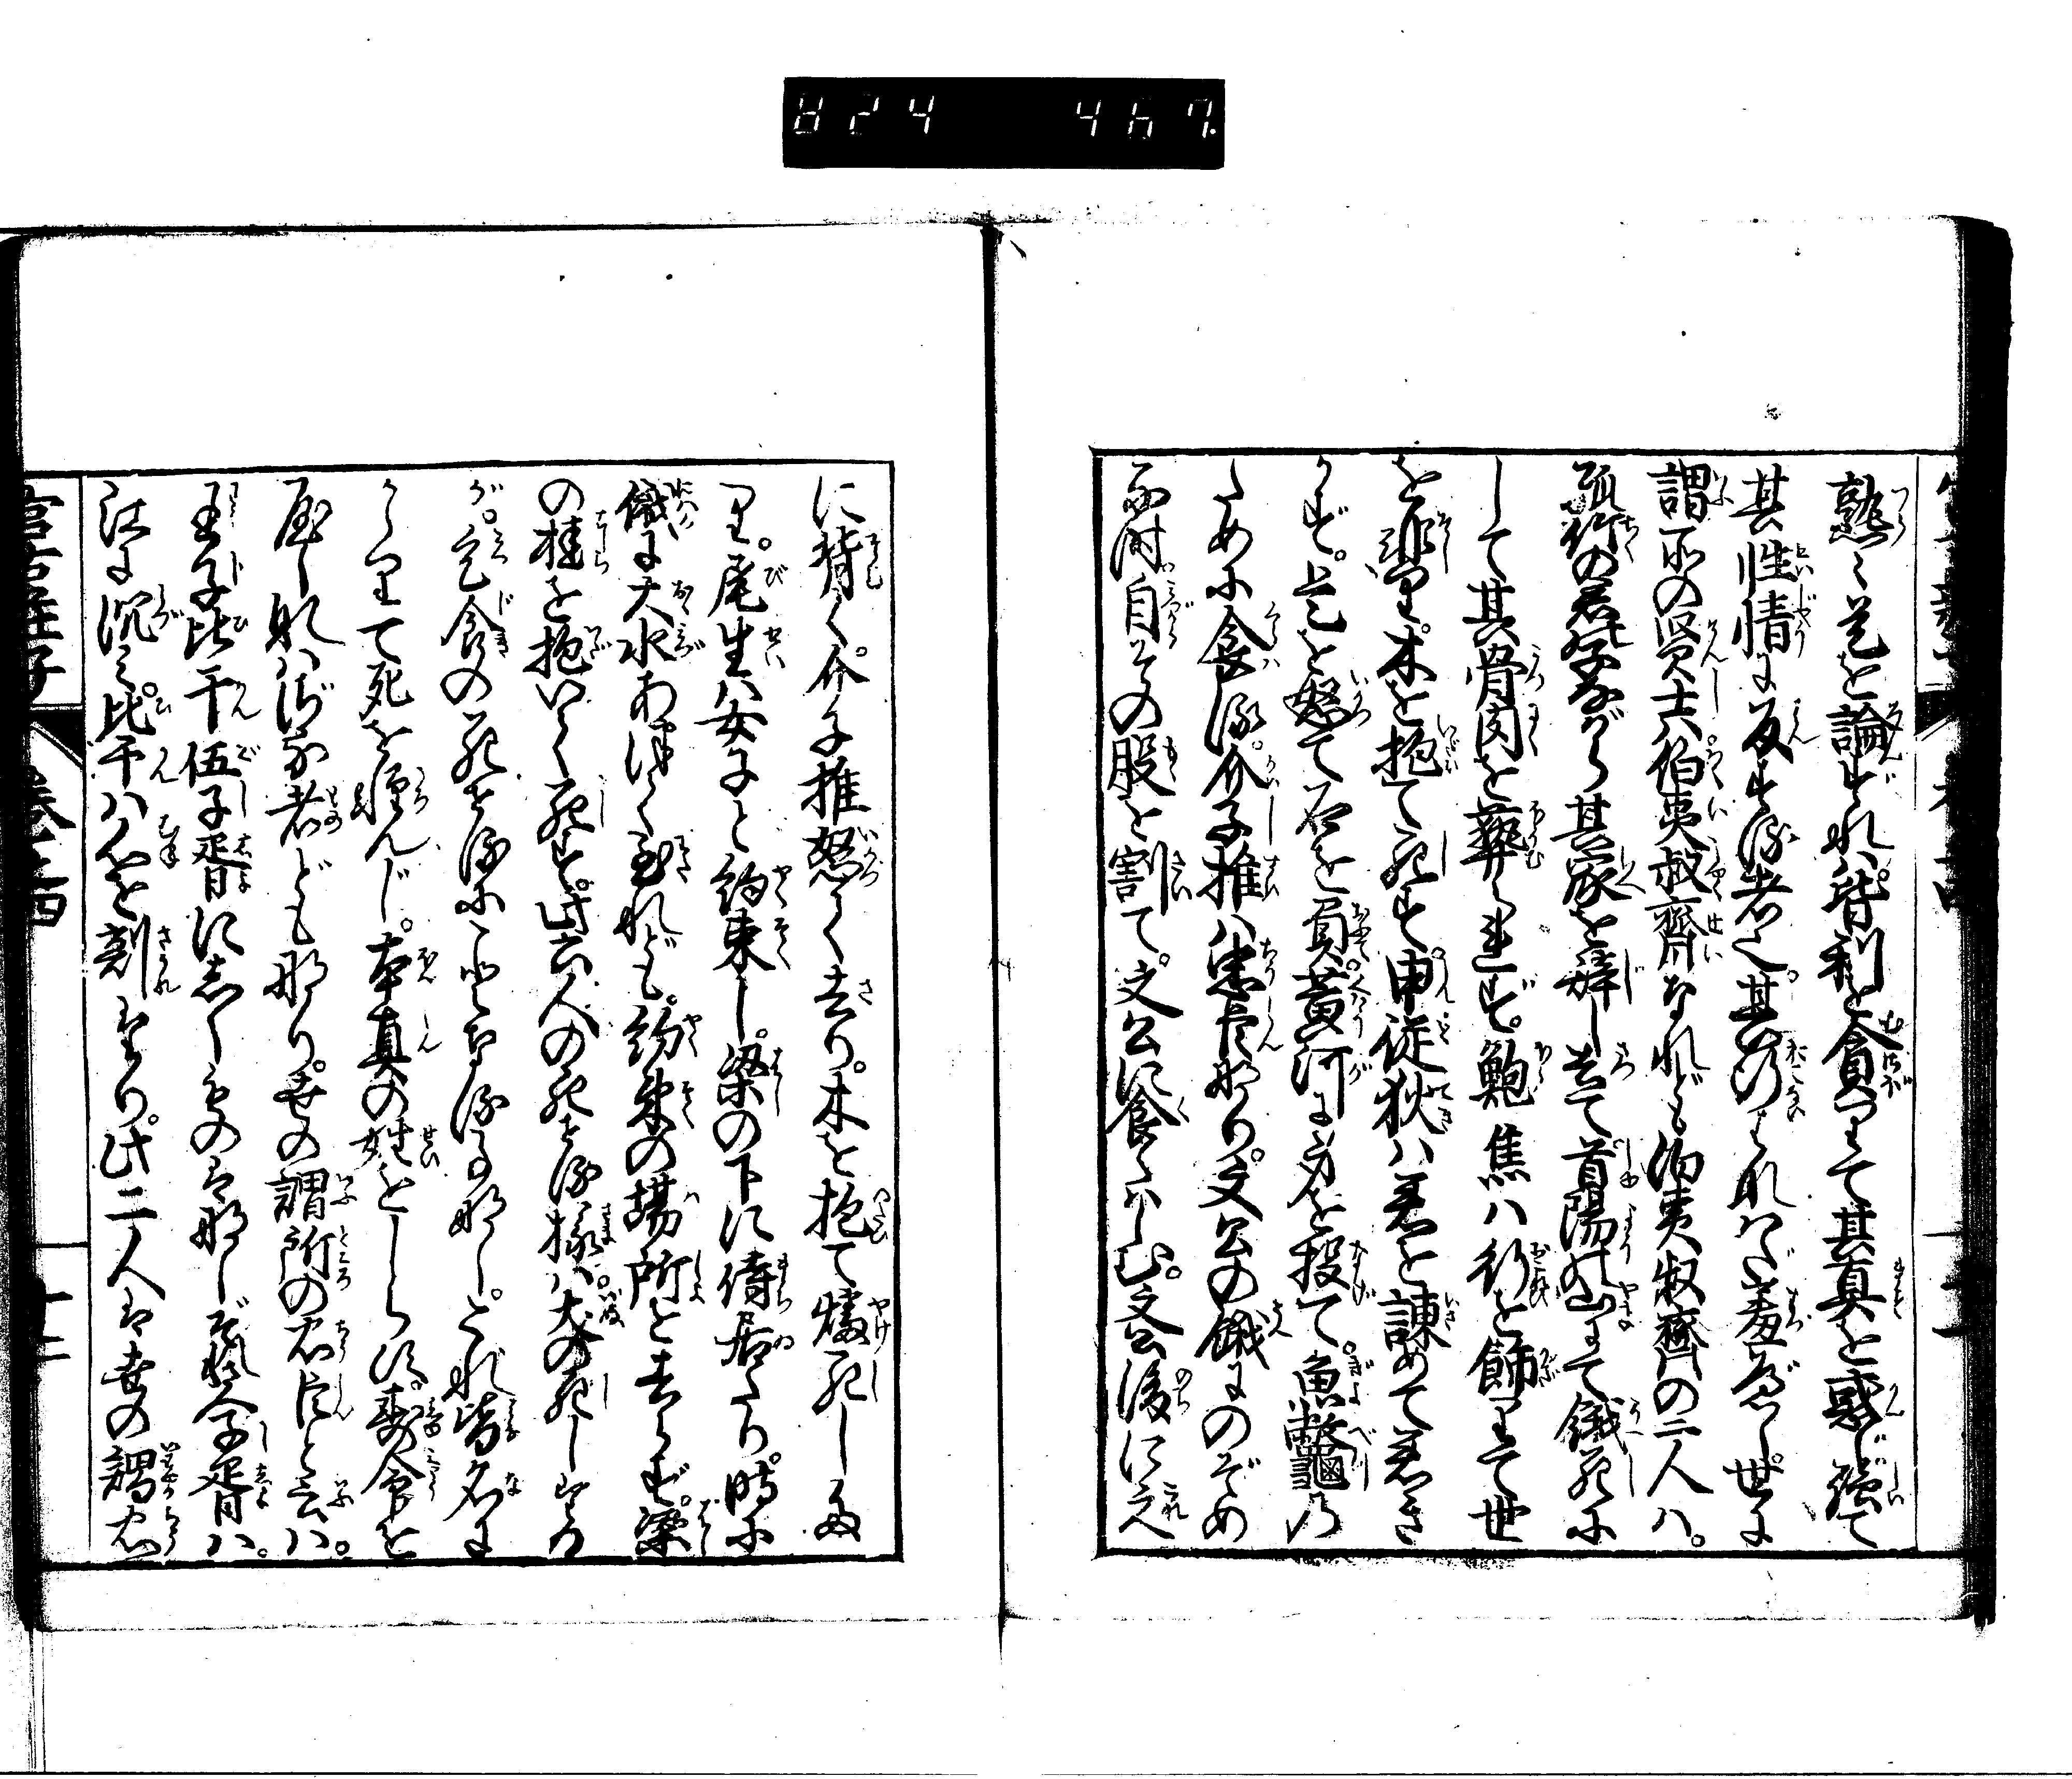 824 467
熟〻是を論ずれバ皆利を貪りて其真を惑じ強て
其性情に反する者也其行はなハだ羞べし世に
謂所の賢士ハ伯夷叔齊なれども伯夷叔齊の二人ハ。
孤竹の君の子ながら其家を辞し去て首陽山にて餓死
して其骨肉を葬られず。鮑焦ハ行を飾りて世
を非り。木を抱て死す。申徒狄ハ君を諫めて君き
かず。是を怒て石を負。黄河に身を投て。魚鼈乃
ために食る。介子推ハ忠臣なり。文公の餓にのぞめ
る時自その股を割て。文公に食ハしむ。文公後に之
に背く。介子推怒て去り。木を抱て燔死した
り。尾生ハ女子と約束し。梁の下に待居たり。時に
俄に大水あつく至れども。約束の場所を去らず。梁
の柱を抱いて死す。此六人の死する様ハ。犬の死したる
が。乞食の死するに
かゝりて死を軽んじ。本真の性をしらず。寿命を
者どもなり。世の謂所の忠臣と云ハ。
王子比干伍子胥にしくものはなし。然るに子胥ハ。
江に沉ミ。比干ハ心を剖れたり。此二人は世の謂忠